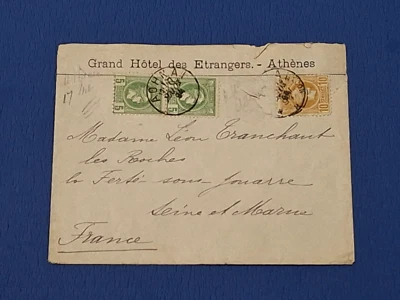 Grand Hôtel des Etrangers. - Athènes
5 5
10 10
ΑΘΗΝΑΙ
17
Madame Léon Tranchant
les Roches
la Ferté sous Jouarre
Seine et Marne
France